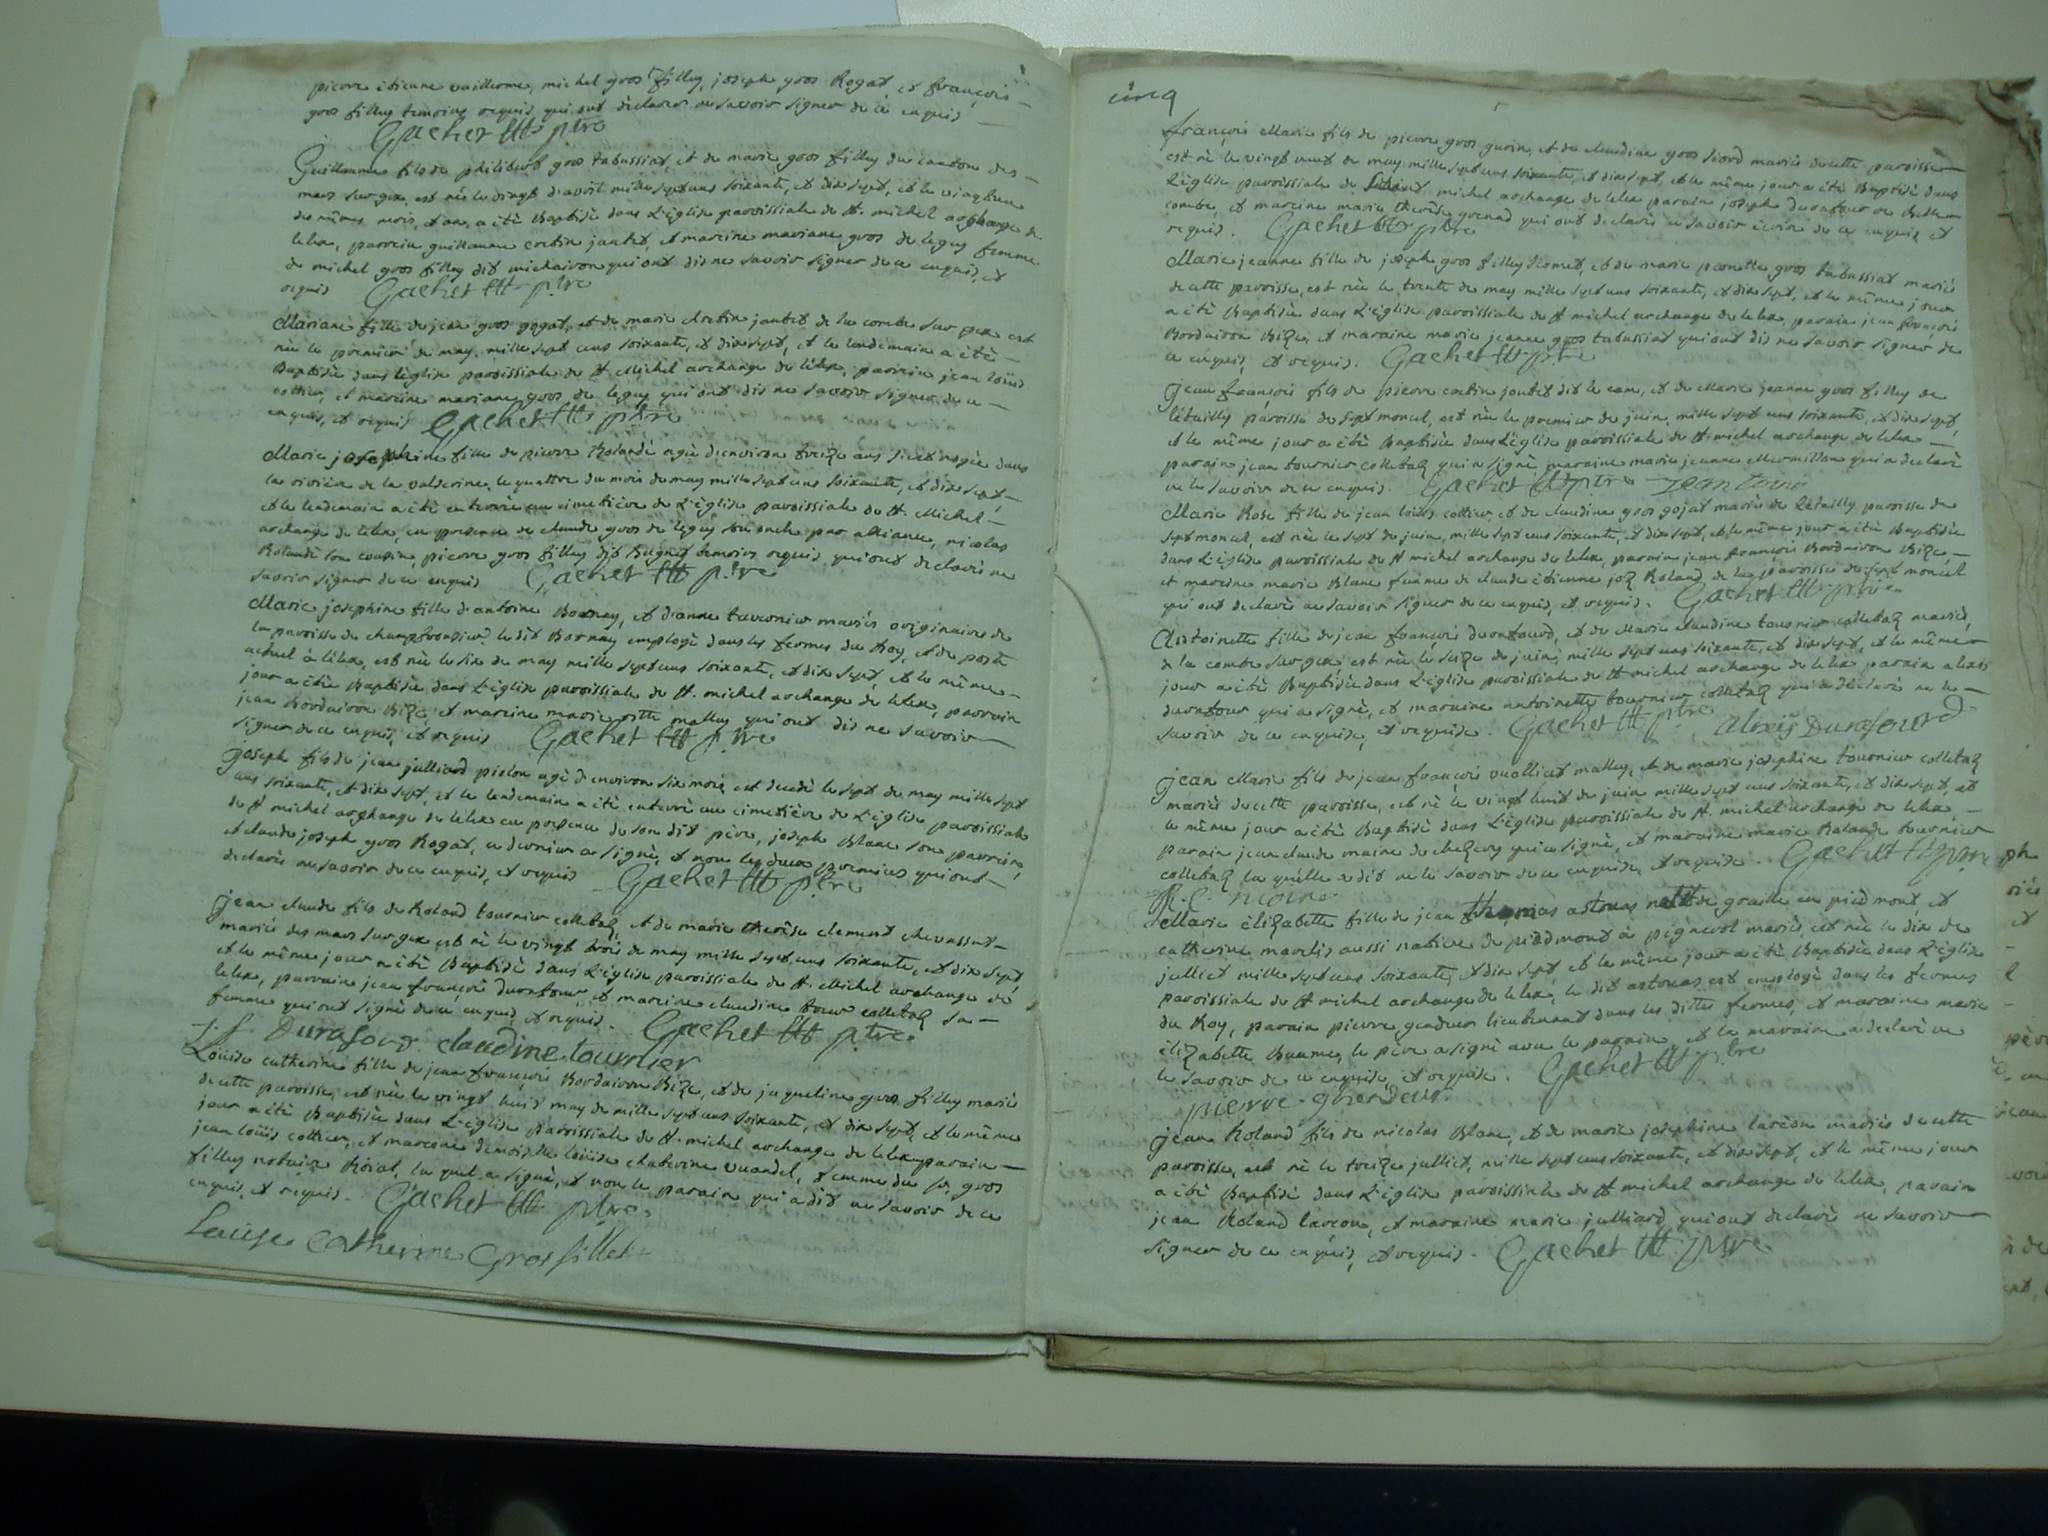 pierre étienne vuillerme, michel gros filley, joseph gros Rogat, et françois
gros filley temoins requis, qui ont déclarés ne savoir signer de ce enquis
Gachet ptre
Guillaume fils de philibert gros tabussiat, et de marie gros filley du canton des
mars sur gex est né le vingt d'avril mille sept cens soixante, et dix sept, et le
du même mois, et an, a été Baptisé dans L'église paroissiale de St. michel archange de
lelex, parrein guillaume cretin jantet, et mareine mariane gros de leguy femme
de michel gros filley dit michaivon qui ont dis ne savoir signer de ce enquis, et
requis Gachet ptre
Mariane fille de jean gros gogat, et de marie Cretin jantet de la combe sur gex est
née le premier de may mille sept cens soixante, et dix sept, et le lendemain a été
Baptisée dans l'église paroissiale de St Michel archange de lelex, parrein jean loüis
cottier, et mareine mariane gros de leguy qui ont dis ne savoir signer de ce
enquis, et requis Gachet ptre
Marie josephine fille de pierre Rolandé agée d'environ treize ans s'est noyée dans
la rivière de la valserine, le quattre du mois de may mille sept cens soixante, et dix sept,
et le lendemain a été enterrée au cimetière de L'église paroissiale de St. Michel
archange de lelex, en presence de claude gros de leguy son oncle par alliance, nicolas
Rolandé son cousin, pierre gros filley dit Bugnet temoins requis, qui ont declaré ne
savoir signer de ce enquis Gachet ptre
Marie josephine fille d'antoine Bornay, et d'anne tavernier mariés originaires de
la paroisse de champfromier, le dit Bornay emploÿé dans les fermes du Roy, et de poste
actuel à lelex, est née le six de may mille sept cens soixante, et dix sept, et le même
jour a été Baptisée dans L'église paroissiale de St. michel archange de lelex, parrein
jean Bordairon Bize, et mareine marie malley qui ont dis ne savoir
signer de ce enquis, et requis Gachet ptre
joseph fils de jean julliard pislon agé d'environ six mois, est decedé le sept de may mille sept
cens soixante, et dix sept, et le lendemain a été enterré au cimetière de L'église paroissiale
de St michel archange de lelex en presence de son dit père, joseph Blanc son parrein,
et claude joseph gros Rogat, ce dernier a signé, et non les deux premiers qui ont
declarés ne savoir de ce enquis, et requis Gachet ptre
jean claude fils de Roland tournier colletaz, et de marie therèse clement chevassut
mariés des mars sur gex est né le vingt trois de may mille sept cens soixante, et dix sept,
et le même jour a été Baptisé dans L'église paroissiale de St. Michel archange de
lelex, parrein jean françois durafour, et mareine claudine tour colletaz sa
femme qui ont signé de ce enquis, et requis. Gachet ptre
j. f. Durafour claudine tournier
Loüise catherine fille de jean françois Bordairon Bize, et de jaqueline gros filley mariés
de cette paroisse, est née le vingt huit may de mille sept cens soixante, et dix sept, et le même
jour a été Baptisée dans L'église paroissiale de St. michel archange de lelex parein
jean loüis cottier, et mareine demoiselle loüise chaterine vuandel, femme du sr. gros
filley notaire Roïal, la quel a signé, et non le parein qui a dit ne savoir de ce
enquis, et requis. Gachet ptre
Louise Catherine Gros fillet
cinq
françois Marie fils de pierre gros gurin, et de claudine gros siord mariés de cette paroisse
est né le vingt neuf de may mille sept cens soixante, et dix sept, et le même jour a été Baptisé dans
L'église paroissiale de Saint michel archange de lelex parain joseph durafour de Belle
combe, et mareine marie therèse grenad qui ont declaré ne savoir écrire de ce enquis, et
requis. Gachet ptre
Marie jeanne fille de joseph gros filley, et de marie pernette gros tabussiat mariés
de cette paroisse, est née le trente de may mille sept cens soixante, et dix sept, et le même jour
a été Baptisée dans L'église paroissiale de St michel archange de lelex, parain jean françois
Bordairon Bize, et maraine marie jeanne gros tabussiat qui ont dis ne savoir signer de
ce enquis, et requis. Gachet ptre
jean françois fils de pierre cretin jantet dit le cam, et de Marie jeanne gros filley de
létailly paroisse de sept moncel, est née le premier de juin, mille sept cens soixante, et dix sept,
et le même jour a été Baptisée dans L'église paroissiale de St. michel archange de lelex
parain jean tournier colletaz qui a signé maraine marie jeanne Mermillon qui a declaré
ne le savoir de ce enquis. Gachet ptre jean tornie
Marie Rose fille de jean loüis cottier, et de claudine gros gojat mariés de Létailly paroisse de
septmoncel, est née le sept de juin, mille sept cens soixante, et dix sept, et le même jour a été Baptisée
dans L'église paroissiale de St michel archange de lelex, parain jean françois Bordairon Bize,
et mareine marie Blanc femme de claude étienne joz Roland de la paroisse de sept moncel
qui ont declaré ne savoir signer de ce enquis, et requis. Gachet ptre
Antoinette fille de jean françois durafourd, et de Marie claudine tournier colletaz mariés,
de la combe sur gex est née le seize de juin, mille sept cens soixante, et dix sept, et le même
jour a été Baptisée dans L'église paroissiale de St michel archange de lelex parain alexis
durafour qui a signé, et maraine antoinette tournier colletaz qui a declaré ne le
savoir de ce enquise, et requise. Gachet ptre Alexis Durafourd
jean Marie fils de jean françois vuolliet malley, et de marie josephine tournier colletaz
mariés de cette paroisse, est né le vingt huit de juin mille sept cens soixante, et dix sept, et
le même jour a été Baptisé dans L'église paroissiale de St. michel archange de lelex,
parain jean claude maine de chezery qui a signé, et maraine marie Rolande tournier
colletaz la quelle a dit ne le savoir de ce enquise, et requise. Gachet ptre
Marie elizabette fille de jean thomas astouas natif de graille en piedmont et
catherine martis aussi native de piedmont à pignerol mariés, est née le dix de
julliet mille sept cens soixante, et dix sept et le même jour a été Baptisée dans L'église
paroissiale de St michel archange de lelex, le dit astouas est emploÿé dans les fermes
du Roy, parain pierre lieutenant dans les dittes fermes, et maraine marie
elizabette Baume, le père a signé avec le parain, et la maraine a declaré ne
le savoir de ce enquise, et requise. Gachet ptre
pierre
jean Roland fils de nicolas Blanc, et de marie josephine larçon mariés de cette
paroisse, est né le treize julliet, mille sept cens soixante, et dix sept, et le même jour
a été Baptisé dans L'église paroissiale de St michel archange de lelex, parain
jean Roland larçon, et maraine marie julliard qui ont declaré ne savoir
signer de ce enquis, et requis. Gachet ptre